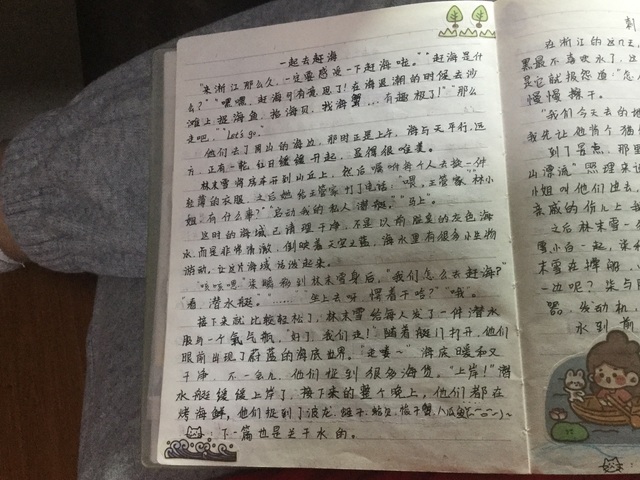 一起去赶海
"来浙江那么久,一定要感受一下赶海啦。""赶海是什
么?""嘿嘿,赶海可有意思了!在海退潮的时候去沙
滩上捉海鱼,拾海贝,找海蟹…有趣极了!""那么
走吧。""Let's go."
他们去了舟山的海边,那时正是上午,海与天平行,远
方,正有一轮红日缓缓升起,显得很唯美。
林末雪将房车开到山丘上,然后嘱咐每个人去换一件
轻薄的衣服,之后她给王管家打了电话:"喂,王管家""林小
姐,有什么事?""启动我的私人潜艇。""马上"
这时的海域已清理干净,不是以前脏臭的灰色海
水,而是非常清澈,倒映着天空之蓝,海水里有很多小生物
游动,让这片海域活泼起来。
"咳咳嗯"柒鹏物到林末雪身后,"我们怎么去赶海?"
"看,潜水艇。""……""坐上去呀,愣着干啥?""哦"。
接下来就比较轻松了,林末雪给每人发了一件潜水
服与一个氧气瓶,"好了,我们走!"随着艇门打开,他们
眼前出现了蔚蓝的海底世界。"走喽~"海底暖和又
干净,不一会儿,他们捉到很多海货。"上岸!"潜
水艇缓缓上岸了,接下来的整个晚上,他们都在
烤海鲜,他们捉到了波龙、蛏子、蛤贝、帝王蟹、八爪鱼
下一篇也是关于水的。
在浙江的这几天
黑最不喜欢水了,这
是它就报怨道:"怎
慢慢擦干。
"我们今天去的地
我先让他猜个猜
到了景点,那里
山漂流。照理来说
小姐叫他们进去
亲戚的份儿上
之后林末雪一
雪小白一起,
末雪在撑船
一边呢?柒与
器,发动机
水到前